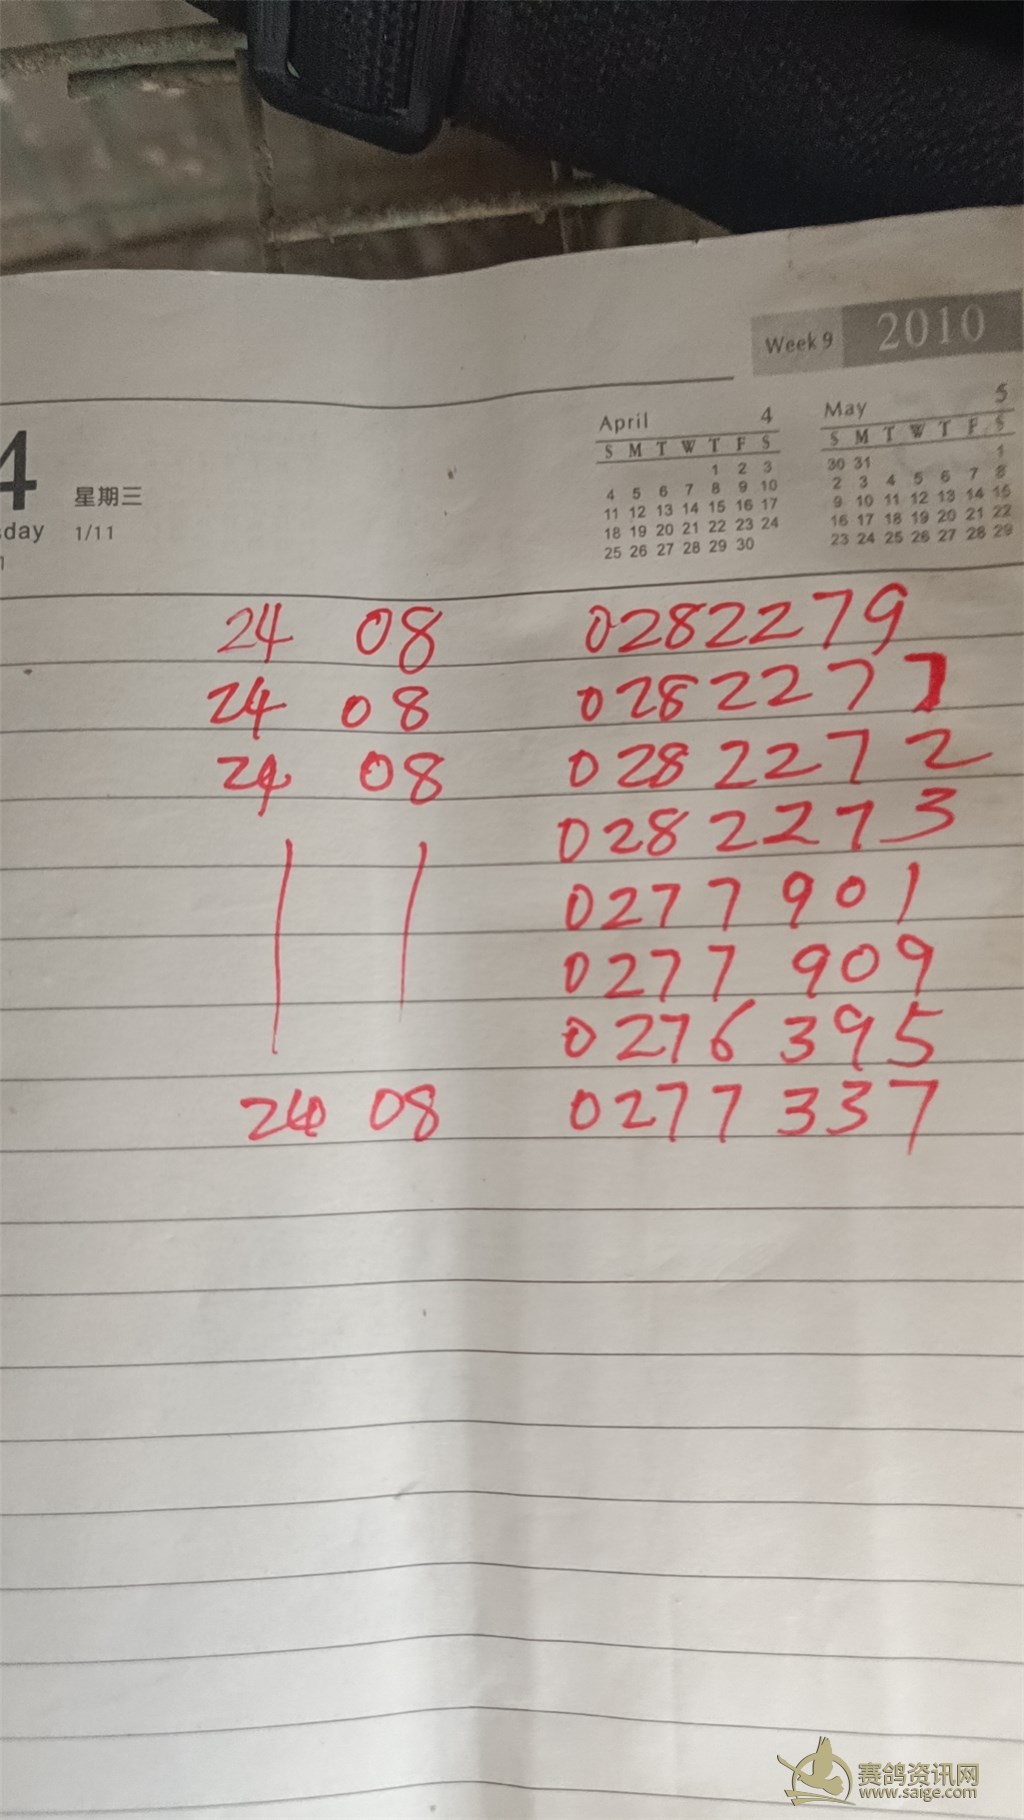 Week 9 2010
April 4 May 5
S M T W T F S S M T W T F S
1 2 3 30 31 1
4 5 6 7 8 9 10 2 3 4 5 6 7 8
11 12 13 14 15 16 17 9 10 11 12 13 14 15
18 19 20 21 22 23 24 16 17 18 19 20 21 22
25 26 27 28 29 30 23 24 25 26 27 28 29
4 星期三
sday 1/11
24 08 0282279
24 08 0282277
24 08 0282272
0282273
0277901
0277909
0276395
24 08 0277337
赛鸽资讯网
www.saige.com